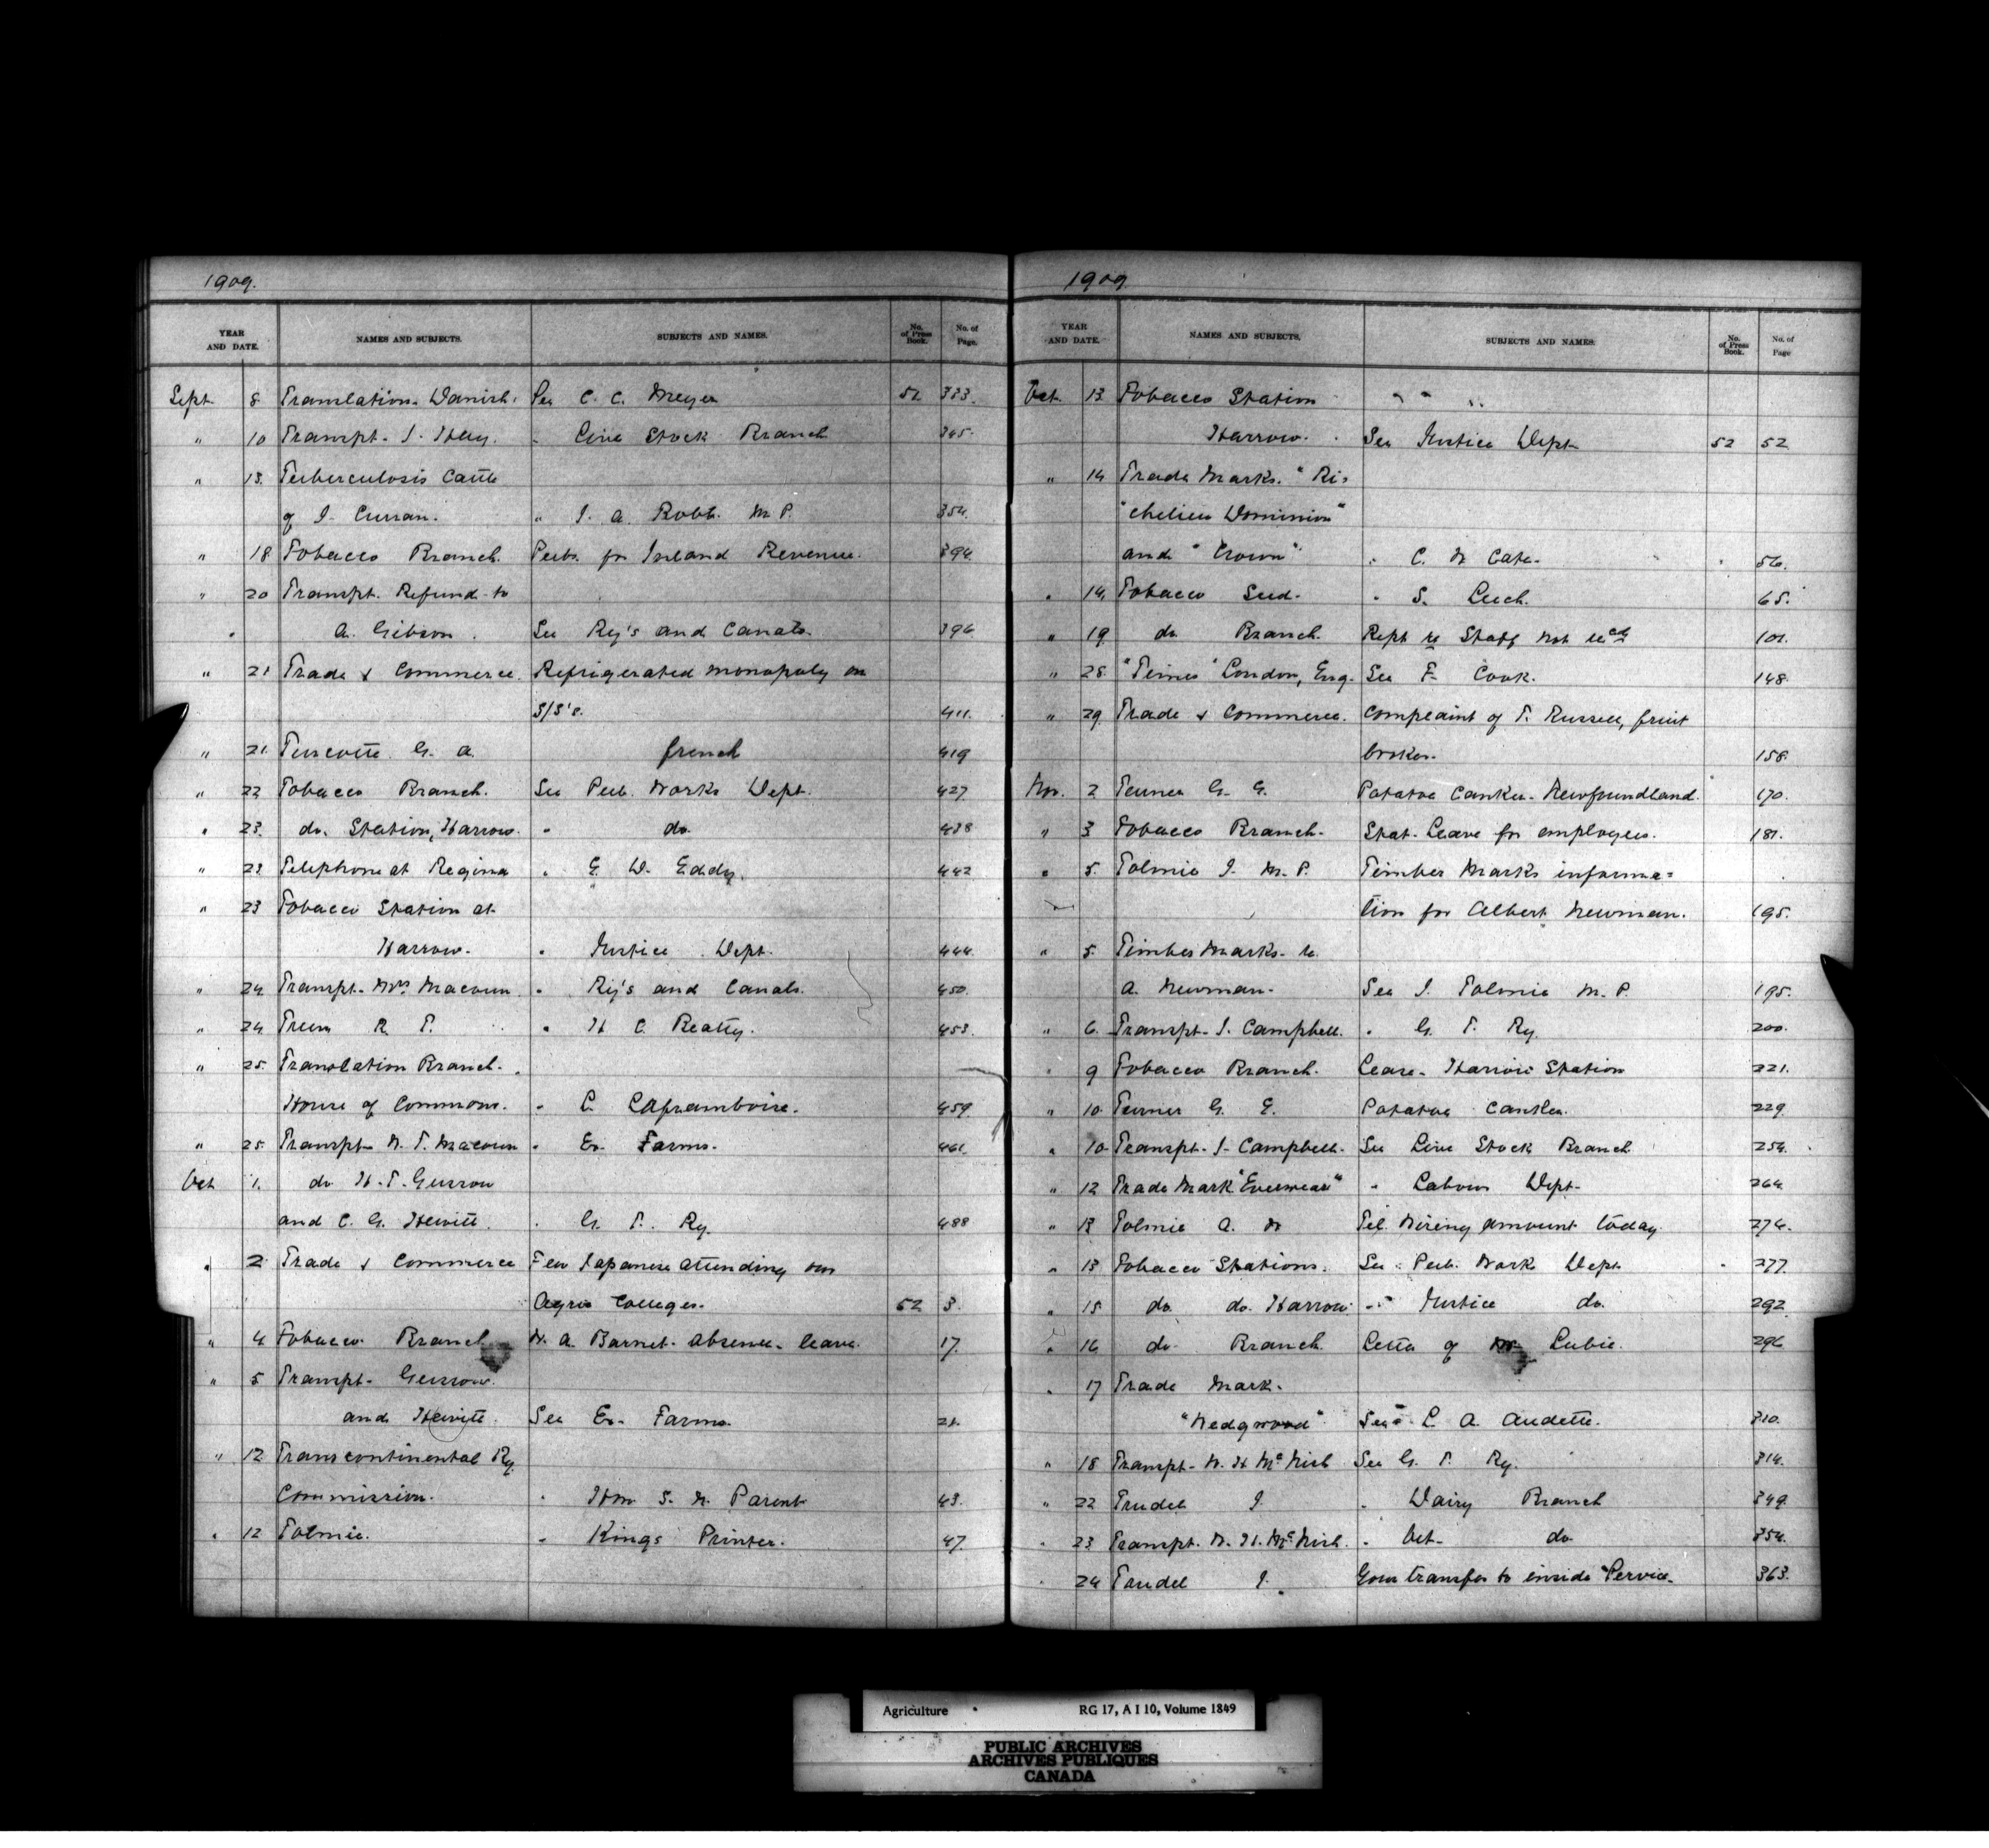 1909.
YEAR AND DATE. NAMES AND SUBJECTS. SUBJECTS AND NAMES. No. of Press Book. No. of Page.
Sept. 8 Translation. Danish. See C. C. Meyer 51 333.
" 10 Transpt. J. Hay. " Live Stock Branch 345.
" 13. Tuberculosis Cattle
of J. Curran. " J. A. Robb. M. P. 354.
" 18 Tobacco Branch. Pubs. for Inland Revenue. 394.
" 20 Transpt. Refund to
A. Gibson. See Ry's and Canals. 396
" 21 Trade & Commerce. Refrigerated monopoly on
S/S's. 411.
" 21. Turcotte G. A. french 419
" 22 Tobacco Branch. See Pub. Works Dept. 427
" 23. do. Station, Harrow. " do. 438
" 23 Telephone at Regina " E. W. Eddy. 442
" 23 Tobacco Station at
Harrow. " Justice Dept. 444
" 24 Transpt. Mrs Macoun. " Ry's and Canals. 450.
" 24 R. T. " H C. Beatty. 453.
" 25. Translation Branch.
House of Commons. " L. Laframboise. 459.
" 25. Transpt. W. T. Macoun " Ex. Farms. 461.
Oct 1. do H. T. Gussow
and C. G. Hewitt. " G. T. Ry. 488
" 2. Trade & Commerce Few Japanese attending our
Agric Colleges. 52 3.
" 4 Tobacco Branch W. A. Barnet. absence. leave. 17.
" 5 Transpt. Gussow
and Hewitt. See Ex. Farms. 21.
" 12 Transcontinental Ry.
Commission. " Hon S. N. Parent 43.
" 12 Tolmie. " Kings Printer. 47.
1909.
YEAR AND DATE. NAMES AND SUBJECTS. SUBJECTS AND NAMES. No. of Press Book. No. of Page
Oct. 13 Tobacco Station
Harrow. See Justice Dept 52 52
" 14 Trade Marks. "Ri=
"chelieu Dominion"
and "Crown" " C. H Cate. " 56.
" 14. Tobacco Seed. " S. Leech. 65.
" 19 do Branch. Rept re Staff not recd 101.
" 28. "Times" London, Eng. See F. Cook. 148.
" 29. Trade & Commerce. Complaint of T. Russell, fruit
broker. 158.
Nov. 2 Turner G. E. Potatoe Canker. Newfoundland. 170.
" 3 Tobacco Branch. Stat. Leave for employees. 181.
" 5. Tolmie J. M. P. Timber Marks informa=
tion for Albert Newman. 195.
" 5. Timber Marks. re
A. Newman. See J. Tolmie M. P. 195.
" 6. Transpt. J. Campbell. " G. T. Ry. 200.
" 9 Tobacco Branch. Lease. Harrow Station 221.
" 10 Turner G. E. Potatoe Canker. 229.
" 10 Transpt. J. Campbell. See Live Stock Branch 254.
" 12 Trade Mark "Everwear" " Labour Dept. 264.
" 13 Tolmie A. W Tel. Wiring amount today. 274.
" 13 Tobacco Stations. See Pub. Works Dept. " 277.
" 15. do do. Harrow. " Justice do. 292
" 16 do. Branch. Letter of Lubie. 296
" 17 Trade Mark.
"Wedgwood" See L. A. Audette. 310.
" 18 Transpt. W. H McNish See G. T. Ry. 314.
" 22 Trudel J. " Dairy Branch 349.
" 23 Transpt. W. H. McNish. " Vet. do 354.
" 24 Trudel J. Your transfer to inside Service. 363.
Agriculture RG 17, A I 10, Volume 1849
PUBLIC ARCHIVES
ARCHIVES PUBLIQUES
CANADA